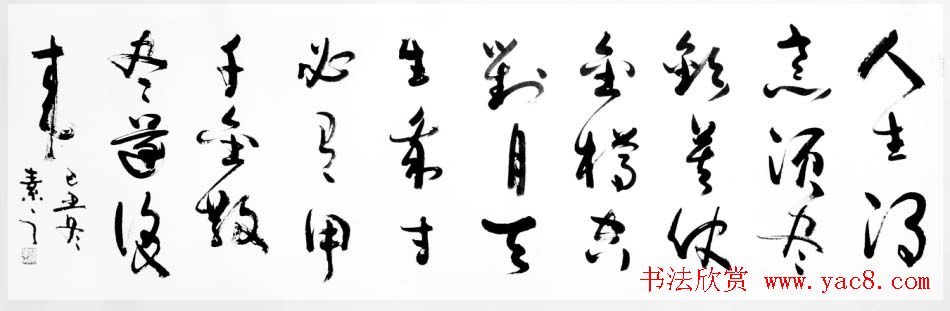 人生得
意须尽
欢莫使
金樽空
對月天
生我材
必有用
千金散
尽還復
来
己丑冬
素
书法欣赏
www.yac8.com